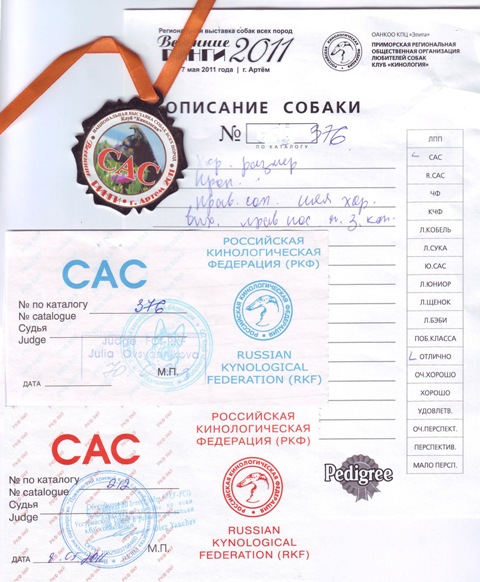 Региональная выставка собак всех пород
Весенние
РИНГИ 2011
7 мая 2011 года | г. Артём
ОАНКОО КПЦ «Элита»
ПРИМОРСКАЯ РЕГИОНАЛЬНАЯ
ОБЩЕСТВЕННАЯ ОРГАНИЗАЦИЯ
ЛЮБИТЕЛЕЙ СОБАК
КЛУБ «КИНОЛОГИЯ»
ОПИСАНИЕ СОБАКИ
№ 376
ПО КАТАЛОГУ
НАЦИОНАЛЬНАЯ ВЫСТАВКА СОБАК ВСЕХ ПОРОД
Клуб "Кинология"
САС
Весенние РИНГИ г. Артём
хор. размер
проп.
прав. гол. шея хор.
выр. прав пос п. з. кон.
ЛПП
САС
R.САС
ЧФ
КЧФ
Л.КОБЕЛЬ
Л.СУКА
Ю.САС
Л.ЮНИОР
Л.ЩЕНОК
Л.БЭБИ
ПОБ.КЛАССА
ОТЛИЧНО
ОЧ.ХОРОШО
ХОРОШО
УДОВЛЕТВ.
ОЧ.ПЕРСПЕКТ.
ПЕРСПЕКТИВ.
МАЛО ПЕРСП.
Pedigree
САС
РОССИЙСКАЯ
КИНОЛОГИЧЕСКАЯ
ФЕДЕРАЦИЯ (РКФ)
№ по каталогу 376
№ catalogue
Судья
Judge
Judge FCI-RKF
Julia Ovsyannikova
ДАТА
М.П.
RUSSIAN
KYNOLOGICAL
FEDERATION (RKF)
САС
РОССИЙСКАЯ
КИНОЛОГИЧЕСКАЯ
ФЕДЕРАЦИЯ (РКФ)
№ по каталогу 212
№ catalogue
Судья
Judge
ДАТА 8.05.2011
М.П.
RUSSIAN
KYNOLOGICAL
FEDERATION (RKF)